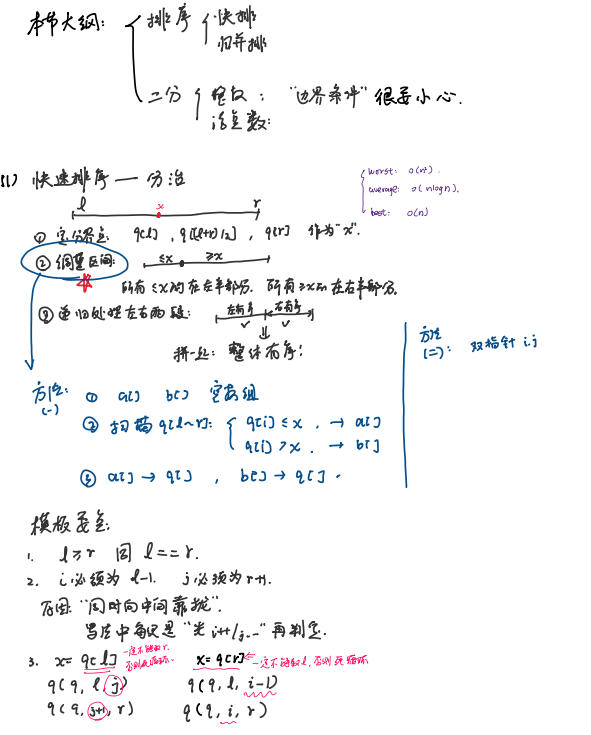 本节大纲: 排序 快排
归并排
二分 整数: "边界条件" 很要小心.
浮点数:
(1) 快速排序 — 分治
worst: O(n²).
average: O(nlogn).
best: O(n)
l x r
① 定分界点: q[l], q[(l+r)/2], q[r] 作为"x".
② 调整区间: ≤x ≥x
所有≤x的在左半部分. 所有≥x的在右半部分.
③ 递归处理左右两段: 左有序 右有序
拼一起: 整体有序!
方法(一): ① a[] b[] 空数组
② 扫描q[l~r]: q[i]≤x. → a[]
q[i]>x. → b[]
③ a[]→q[], b[]→q[].
方法(二): 双指针 i.j
模板要点:
1. l≥r 同 l==r.
2. i必须为 l-1. j必须为r+1.
原因: "同时向中间靠拢".
算法中每次是"先i++/j--"再判定.
3. x=q[l] 一定不能取r, 否则死循环. x=q[r] ← 一定不能取l, 否则死循环
q(q, l, j) q(q, l, i-1)
q(q, j+1, r) q(q, i, r)